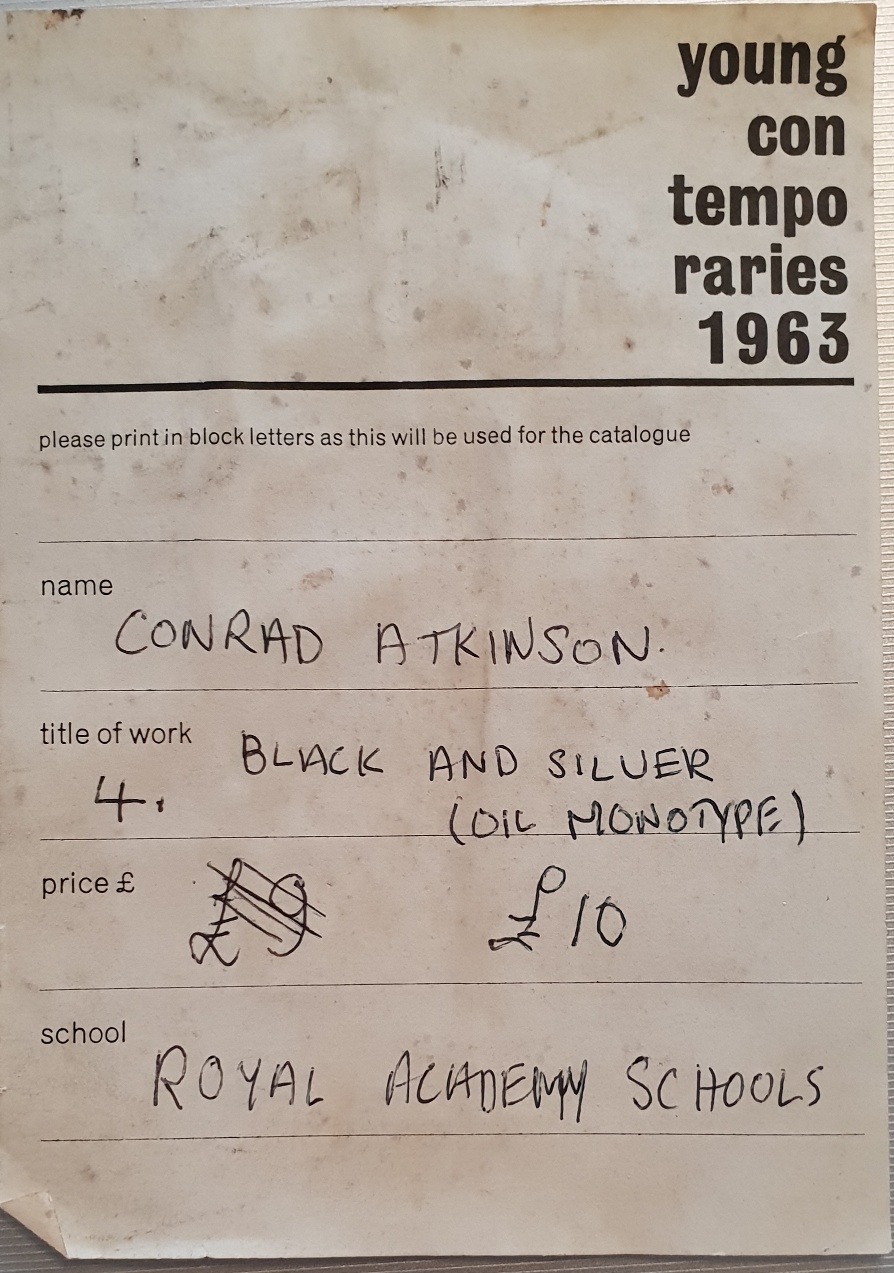 young
con
tempo
raries
1963
please print in block letters as this will be used for the catalogue
name
CONRAD ATKINSON.
title of work BLACK AND SILVER
4. (OIL MONOTYPE)
price £ £9 £10
school
ROYAL ACADEMY SCHOOLS